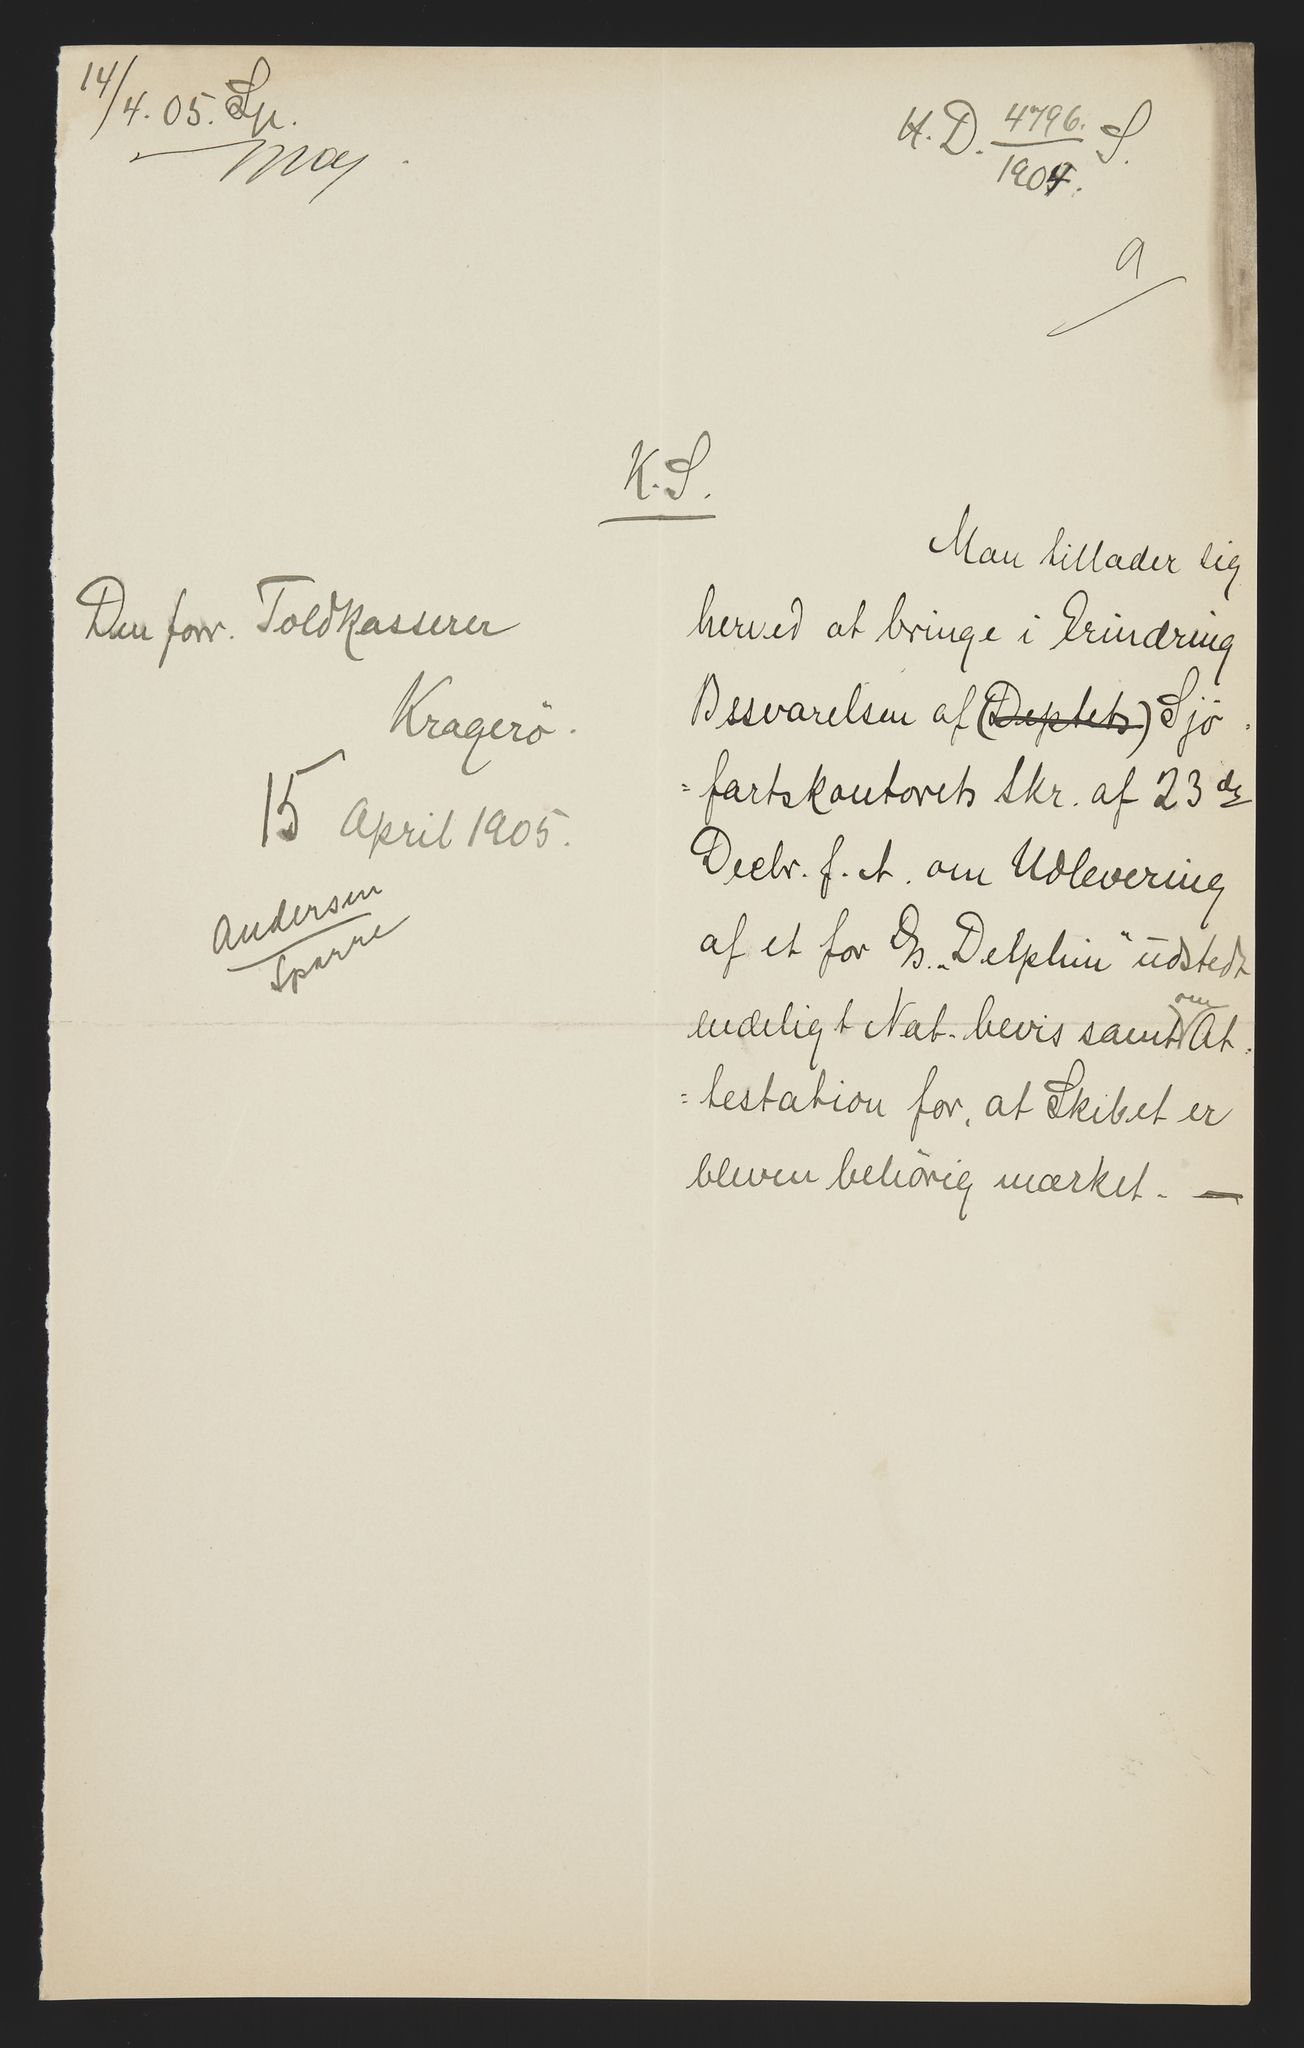 14/4. 05. Sp.
H. D. 4796. S.
1904.
a
K. S.
Den forr. Toldkasserer
Kragerö.
15 April 1905.
Andersen
Sparre
Man tillader sig
herved at bringe i Erindring
Bssvarelsen af (Deptets) Sjö
=fartskontorets Skr. af 23de
Decbr. f. A. om Udlevering
af et for D/S. „Delphin" udstedt
endeligt Nat. bevis samt om At=
=testation for, at Skibet er
bleven behörig mærket. —